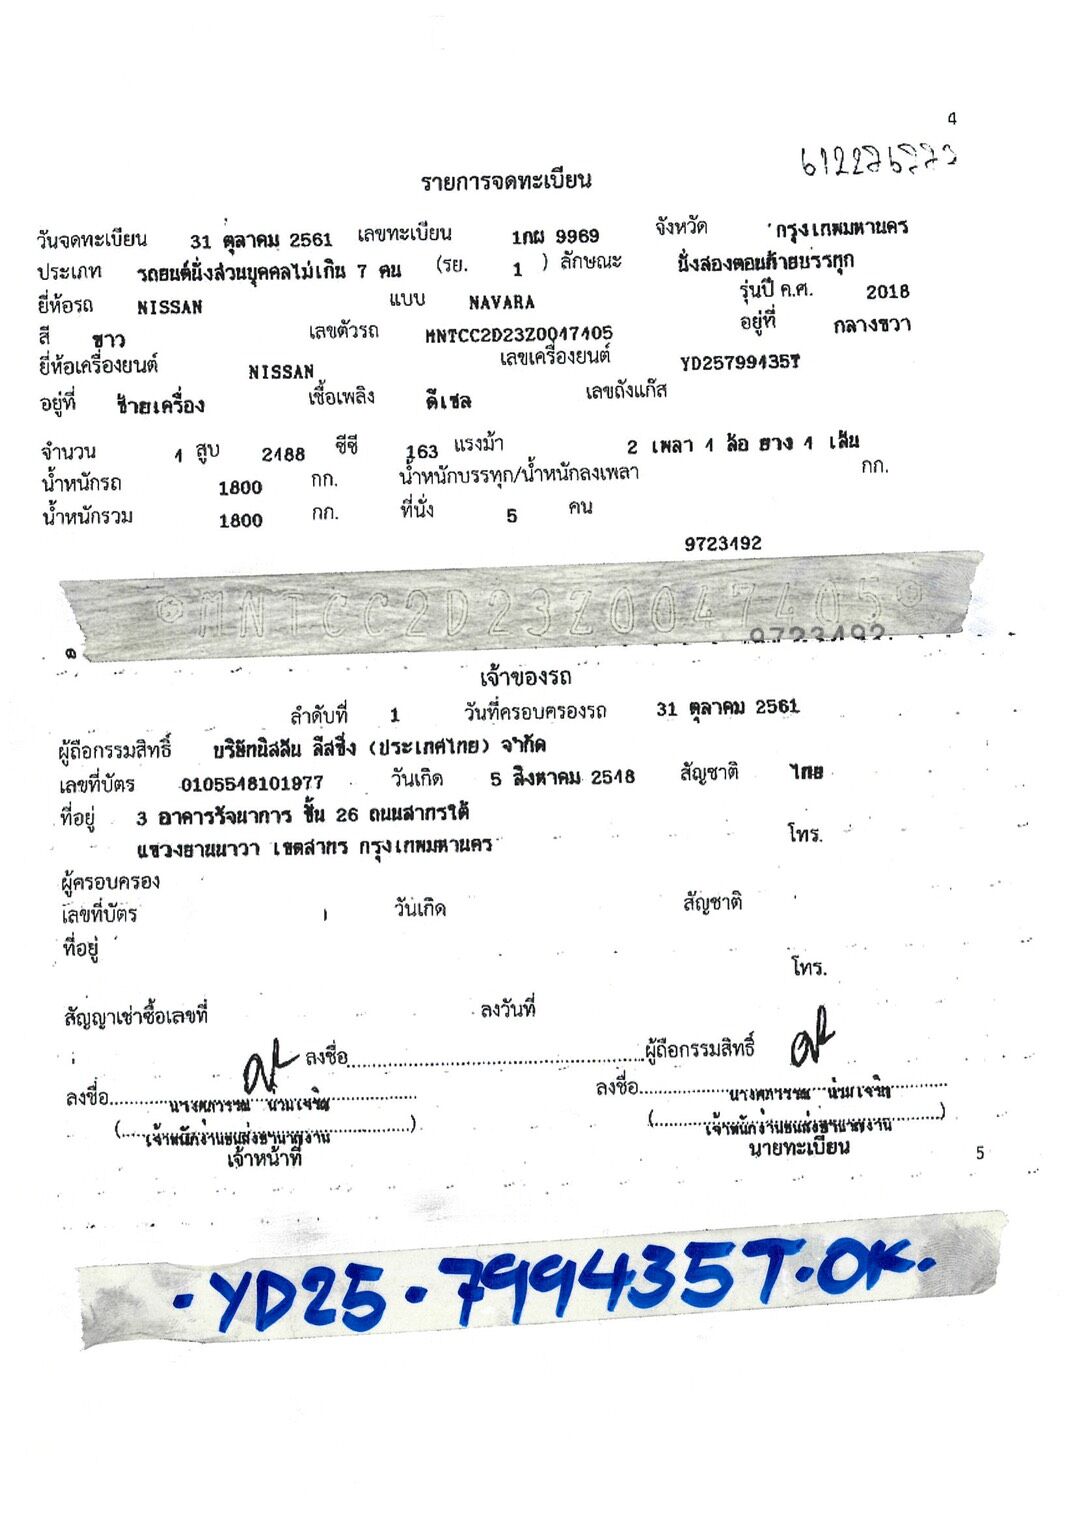 4
612276773
รายการจดทะเบียน
วันจดทะเบียน 31 ตุลาคม 2561 เลขทะเบียน 1กผ 9969 จังหวัด กรุงเทพมหานคร
ประเภท รถยนต์นั่งส่วนบุคคลไม่เกิน 7 คน (รย. 1 ) ลักษณะ นั่งสองตอนท้ายบรรทุก
ยี่ห้อรถ NISSAN แบบ NAVARA รุ่นปี ค.ศ. 2018
สี ขาว เลขตัวรถ MNTCC2D23Z0047405 อยู่ที่ กลางขวา
ยี่ห้อเครื่องยนต์ NISSAN เลขเครื่องยนต์ YD25799435T
อยู่ที่ ซ้ายเครื่อง เชื้อเพลิง ดีเซล เลขถังแก๊ส
จำนวน 4 สูบ 2488 ซีซี 163 แรงม้า 2 เพลา 4 ล้อ ยาง 4 เส้น
น้ำหนักรถ 1800 กก. น้ำหนักบรรทุก/น้ำหนักลงเพลา กก.
น้ำหนักรวม 1800 กก. ที่นั่ง 5 คน
9723492
MNTCC2D23Z0047405
9723492
เจ้าของรถ
ลำดับที่ 1 วันที่ครอบครองรถ 31 ตุลาคม 2561
ผู้ถือกรรมสิทธิ์ บริษัทนิสสัน ลีสซิ่ง (ประเทศไทย) จำกัด
เลขที่บัตร 0105548101977 วันเกิด 5 สิงหาคม 2548 สัญชาติ ไทย
ที่อยู่ 3 อาคารรัจนาการ ชั้น 26 ถนนสาทรใต้
แขวงยานนาวา เขตสาทร กรุงเทพมหานคร โทร.
ผู้ครอบครอง
เลขที่บัตร วันเกิด สัญชาติ
ที่อยู่
โทร.
สัญญาเช่าซื้อเลขที่ ลงวันที่
ลงชื่อ ผู้ถือกรรมสิทธิ์
ลงชื่อ ลงชื่อ
เจ้าพนักงานขนส่งชำนาญงาน เจ้าพนักงานขนส่งชำนาญงาน
เจ้าหน้าที่ นายทะเบียน
5
·YD25·799435T·OK·